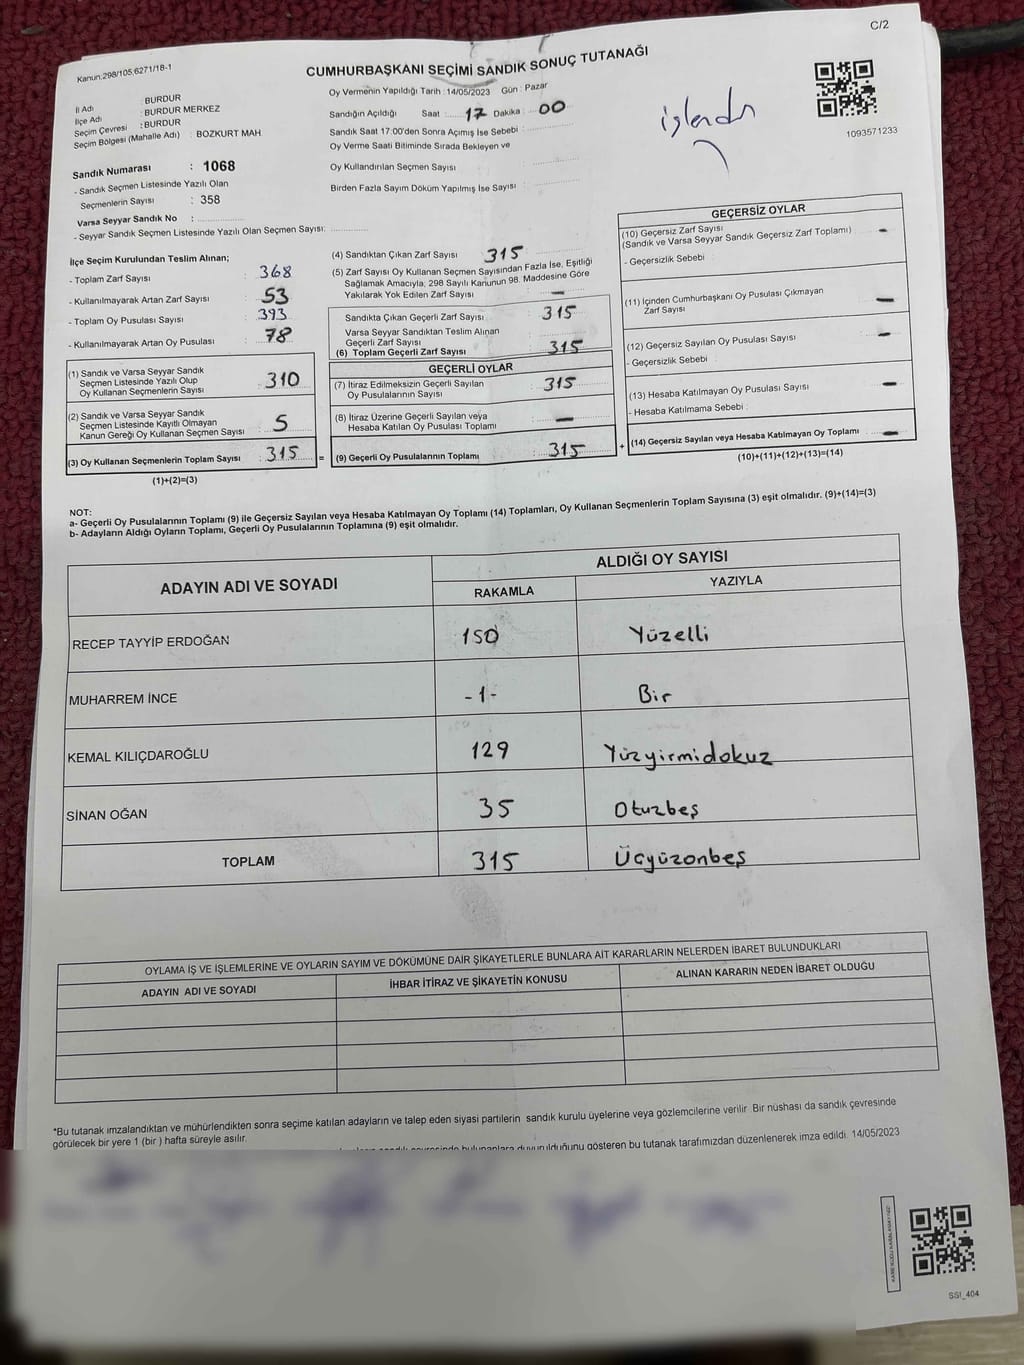 C/2
Kanun.298/105,6271/18-1
CUMHURBAŞKANI SEÇİMİ SANDIK SONUÇ TUTANAĞI
İl Adı : BURDUR
İlçe Adı : BURDUR MERKEZ
Seçim Çevresi : BURDUR
Seçim Bölgesi (Mahalle Adı) : BOZKURT MAH.
Oy Vermenin Yapıldığı Tarih : 14/05/2023 Gün : Pazar
Sandığın Açıldığı Saat : 17 Dakika : 00
Sandık Saat 17:00'den Sonra Açımış İse Sebebi :
Oy Verme Saati Bitiminde Sırada Bekleyen ve
Oy Kullandırılan Seçmen Sayısı :
Birden Fazla Sayım Döküm Yapılmış İse Sayısı :
işlendi
1093571233
Sandık Numarası : 1068
- Sandık Seçmen Listesinde Yazılı Olan
Seçmenlerin Sayısı : 358
Varsa Seyyar Sandık No :
- Seyyar Sandık Seçmen Listesinde Yazılı Olan Seçmen Sayısı:
İlçe Seçim Kurulundan Teslim Alınan;
- Toplam Zarf Sayısı : 368
- Kullanılmayarak Artan Zarf Sayısı : 53
- Toplam Oy Pusulası Sayısı : 393
- Kullanılmayarak Artan Oy Pusulası : 78
(1) Sandık ve Varsa Seyyar Sandık
Seçmen Listesinde Yazılı Olup
Oy Kullanan Seçmenlerin Sayısı : 310
(2) Sandık ve Varsa Seyyar Sandık
Seçmen Listesinde Kayıtlı Olmayan
Kanun Gereği Oy Kullanan Seçmen Sayısı : 5
(3) Oy Kullanan Seçmenlerin Toplam Sayısı : 315 =
(1)+(2)=(3)
(4) Sandıktan Çıkan Zarf Sayısı : 315
(5) Zarf Sayısı Oy Kullanan Seçmen Sayısından Fazla İse, Eşitliği
Sağlamak Amacıyla; 298 Sayılı Kanunun 98. Maddesine Göre
Yakılarak Yok Edilen Zarf Sayısı : –
Sandıkta Çıkan Geçerli Zarf Sayısı : 315
Varsa Seyyar Sandıktan Teslim Alınan
Geçerli Zarf Sayısı :
(6) Toplam Geçerli Zarf Sayısı : 315
GEÇERLİ OYLAR
(7) İtiraz Edilmeksizin Geçerli Sayılan
Oy Pusulasının Sayısı : 315
(8) İtiraz Üzerine Geçerli Sayılan veya
Hesaba Katılan Oy Pusulası Toplamı : –
(9) Geçerli Oy Pusulalarının Toplamı : 315 +
GEÇERSİZ OYLAR
(10) Geçersiz Zarf Sayısı
(Sandık ve Varsa Seyyar Sandık Geçersiz Zarf Toplamı) : –
- Geçersizlik Sebebi :
(11) İçinden Cumhurbaşkanı Oy Pusulası Çıkmayan
Zarf Sayısı : –
(12) Geçersiz Sayılan Oy Pusulası Sayısı : –
- Geçersizlik Sebebi :
(13) Hesaba Katılmayan Oy Pusulası Sayısı : –
- Hesaba Katılmama Sebebi :
(14) Geçersiz Sayılan veya Hesaba Katılmayan Oy Toplamı : –
(10)+(11)+(12)+(13)=(14)
NOT:
a- Geçerli Oy Pusulalarının Toplamı (9) ile Geçersiz Sayılan veya Hesaba Katılmayan Oy Toplamı (14) Toplamları, Oy Kullanan Seçmenlerin Toplam Sayısına (3) eşit olmalıdır. (9)+(14)=(3)
b- Adayların Aldığı Oyların Toplamı, Geçerli Oy Pusulalarının Toplamına (9) eşit olmalıdır.
ADAYIN ADI VE SOYADI
ALDIĞI OY SAYISI
RAKAMLA YAZIYLA
RECEP TAYYİP ERDOĞAN 150 Yüzelli
MUHARREM İNCE -1- Bir
KEMAL KILIÇDAROĞLU 129 Yüzyirmidokuz
SİNAN OĞAN 35 Otuzbeş
TOPLAM 315 Üçyüzonbeş
OYLAMA İŞ VE İŞLEMLERİNE VE OYLARIN SAYIM VE DÖKÜMÜNE DAİR ŞİKAYETLERLE BUNLARA AİT KARARLARIN NELERDEN İBARET BULUNDUKLARI
ADAYIN ADI VE SOYADI İHBAR İTİRAZ VE ŞİKAYETİN KONUSU ALINAN KARARIN NEDEN İBARET OLDUĞU
*Bu tutanak imzalandıktan ve mühürlendikten sonra seçime katılan adayların ve talep eden siyasi partilerin sandık kurulu üyelerine veya gözlemcilerine verilir. Bir nüshası da sandık çevresinde
görülecek bir yere 1 (bir ) hafta süreyle asılır.
bulunanlara duyurulduğunu gösteren bu tutanak tarafımızdan düzenlenerek imza edildi. 14/05/2023
SSI_404